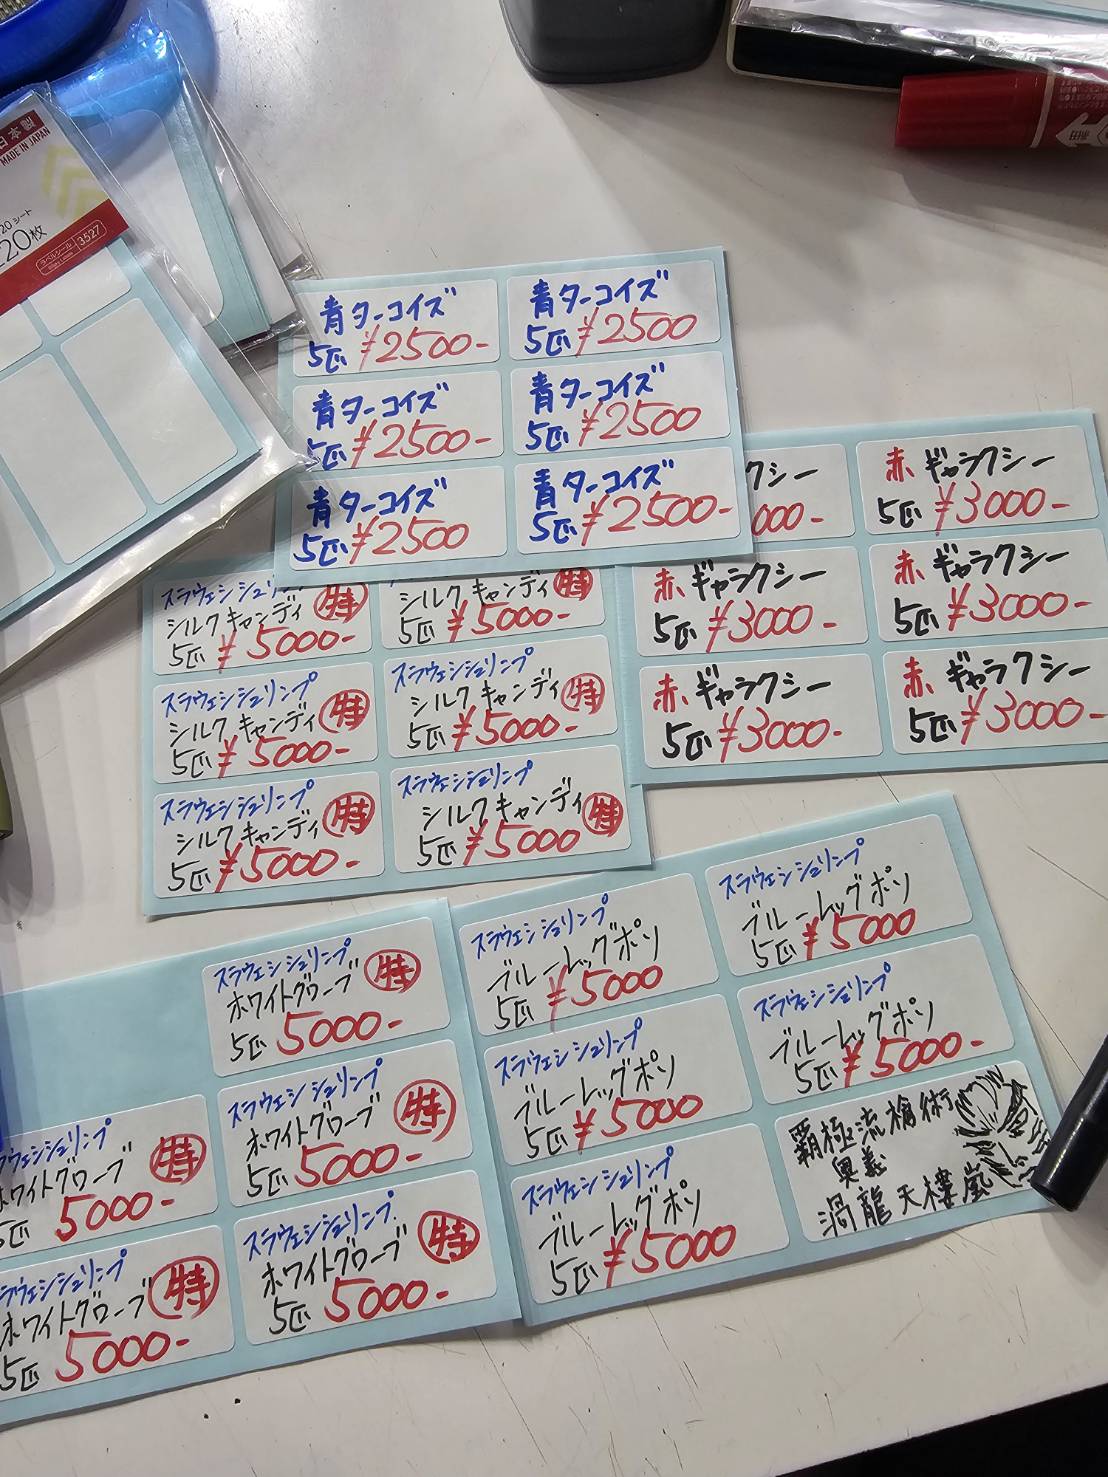 日本製
MADE IN JAPAN
20シート
120枚
ラベルシール
3527
青ターコイズ
5匹 ¥2500-
青ターコイズ
5匹 ¥2500
青ターコイズ
5匹 ¥2500-
青ターコイズ
5匹 ¥2500
青ターコイズ
5匹 ¥2500
青ターコイズ
5匹 ¥2500-
ギャラクシー
000-
赤ギャラクシー
5匹 ¥3000-
赤ギャラクシー
5匹 ¥3000-
赤ギャラクシー
5匹 ¥3000-
赤ギャラクシー
5匹 ¥3000-
赤ギャラクシー
5匹 ¥3000-
スラウェシシュリンプ
シルクキャンディ 特
5匹 ¥5000-
シルクキャンディ 特
5匹 ¥5000-
スラウェシシュリンプ
シルクキャンディ 特
5匹 ¥5000-
スラウェシシュリンプ
シルクキャンディ 特
5匹 ¥5000-
スラウェシシュリンプ
シルクキャンディ 特
5匹 ¥5000-
スラウェシシュリンプ
シルクキャンディ 特
5匹 ¥5000
スラウェシシュリンプ
ホワイトグローブ 特
5匹 5000-
スラウェシシュリンプ
ホワイトグローブ 特
5匹 5000-
スラウェシシュリンプ
ホワイトグローブ 特
5匹 5000-
スラウェシシュリンプ
ホワイトグローブ 特
5匹 5000-
スラウェシシュリンプ
ホワイトグローブ 特
5匹 5000-
スラウェシシュリンプ
ブルーレッグポソ
5匹 ¥5000
スラウェシシュリンプ
ブルーレッグポソ
5匹 ¥5000
スラウェシシュリンプ
ブルーレッグポソ
5匹 ¥5000
スラウェシシュリンプ
ブルーレッグポソ
5匹 ¥5000-
スラウェシシュリンプ
ブルーレッグポソ
5匹 ¥5000
覇極流槍術
奥義
渦龍天樓嵐